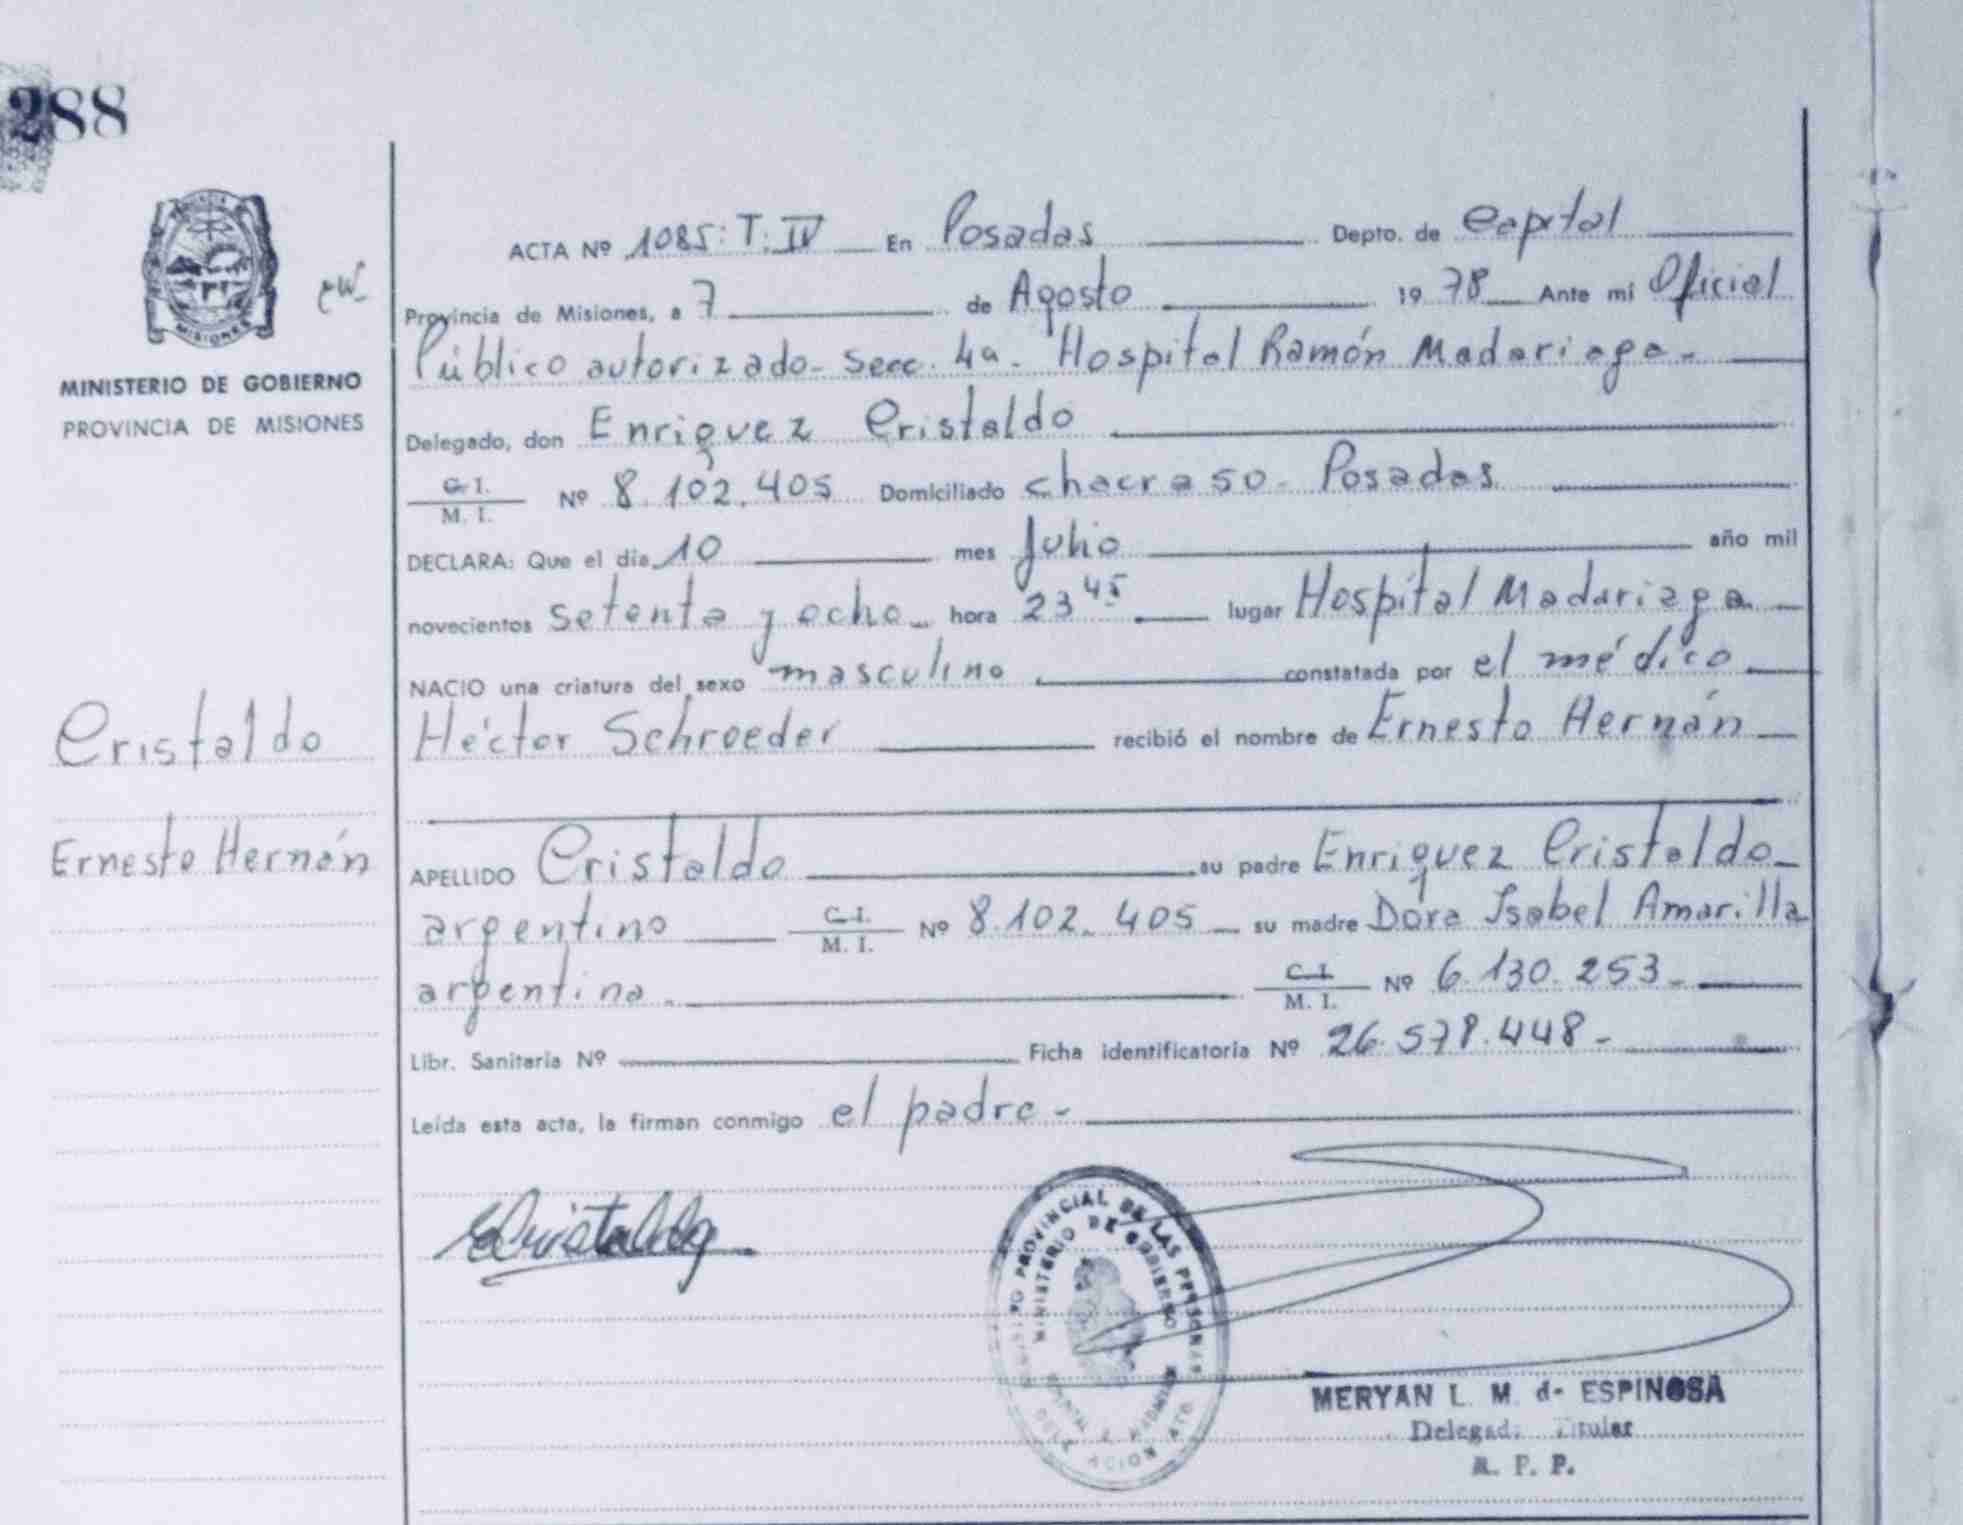 288
MISIONES
MINISTERIO DE GOBIERNO
PROVINCIA DE MISIONES
Cristaldo
Ernesto Hernán
ACTA Nº 1085: T: IV En Posadas Depto. de Capital
Provincia de Misiones, a 7 de Agosto 19 78 Ante mi Oficial
Público autorizado - Secc. 4a - Hospital Ramón Madariaga -
Delegado, don Enriquez Cristaldo
C. I.
M. I. Nº 8.102.405 Domiciliado chacra 50 - Posadas
DECLARA: Que el día 10 mes Julio año mil
novecientos setenta y ocho hora 23 45 lugar Hospital Madariaga
NACIO una criatura del sexo masculino constatada por el médico
Héctor Schroeder recibió el nombre de Ernesto Hernán
APELLIDO Cristaldo su padre Enriquez Cristaldo
argentino C. I. M. I. Nº 8.102.405 su madre Dora Isabel Amarilla
argentina. C. I. M. I. Nº 6.130.253 -
Libr. Sanitaria Nº Ficha identificatoria Nº 26.578.448 -
Leída esta acta, la firman conmigo el padre -
ECristaldo
PROVINCIAL DE LAS PERSONAS
MINISTERIO DE GOBIERNO
MERYAN L. M. d- ESPINOSA
Delegad Titular
A. P. P.